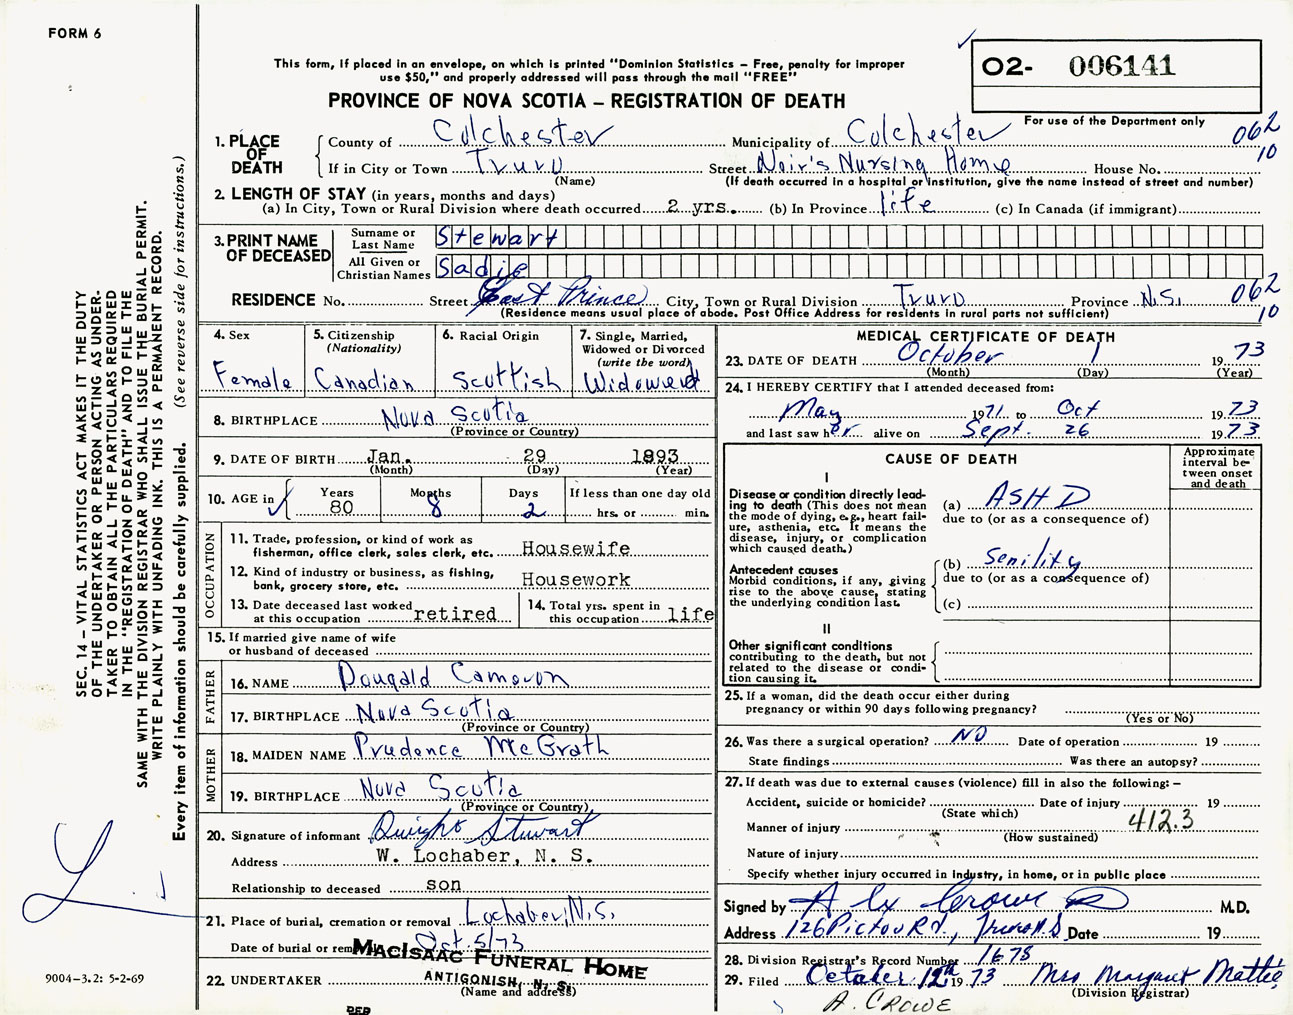 FORM 6
This form, if placed in an envelope, on which is printed "Dominion Statistics – Free, penalty for improper
use $50," and properly addressed will pass through the mail "FREE"
PROVINCE OF NOVA SCOTIA – REGISTRATION OF DEATH
O2- 006141
For use of the Department only
062
10
1. PLACE OF DEATH
County of Colchester Municipality of Colchester
If in City or Town Truro Street Noir's Nursing Home House No.
(Name) (If death occurred in a hospital or institution, give the name instead of street and number)
2. LENGTH OF STAY (in years, months and days)
(a) In City, Town or Rural Division where death occurred 2 yrs. (b) In Province life (c) In Canada (if immigrant)
3. PRINT NAME OF DECEASED
Surname or Last Name Stewart
All Given or Christian Names Sadie
RESIDENCE No. Street East Prince City, Town or Rural Division Truro Province N.S. 062
(Residence means usual place of abode. Post Office Address for residents in rural parts not sufficient) 10
4. Sex Female
5. Citizenship (Nationality) Canadian
6. Racial Origin Scottish
7. Single, Married, Widowed or Divorced (write the word) Widowed
8. BIRTHPLACE Nova Scotia
(Province or Country)
9. DATE OF BIRTH Jan. 29 1893
(Month) (Day) (Year)
10. AGE in Years 80 Months 8 Days 2 If less than one day old
hrs. or min.
OCCUPATION
11. Trade, profession, or kind of work as
fisherman, office clerk, sales clerk, etc. Housewife
12. Kind of industry or business, as fishing,
bank, grocery store, etc. Housework
13. Date deceased last worked
at this occupation retired
14. Total yrs. spent in
this occupation life
15. If married give name of wife
or husband of deceased
FATHER
16. NAME Dougald Cameron
17. BIRTHPLACE Nova Scotia
(Province or Country)
MOTHER
18. MAIDEN NAME Prudence McGrath
19. BIRTHPLACE Nova Scotia
(Province or Country)
20. Signature of informant Dwight Stewart
Address W. Lochaber, N. S.
Relationship to deceased son
21. Place of burial, cremation or removal Lochaber, N.S.
Date of burial or rem Oct. 5/73
22. UNDERTAKER
MACISAAC FUNERAL HOME
ANTIGONISH, N. S.
(Name and address)
MEDICAL CERTIFICATE OF DEATH
23. DATE OF DEATH October 1 1973
(Month) (Day) (Year)
24. I HEREBY CERTIFY that I attended deceased from:
May 1971 to Oct 1973
and last saw her alive on Sept. 26 1973
CAUSE OF DEATH
Approximate interval between onset and death
I
Disease or condition directly lead-
ing to death (This does not mean
the mode of dying, e.g., heart fail-
ure, asthenia, etc. It means the
disease, injury, or complication
which caused death.)
(a) ASHD
due to (or as a consequence of)
Antecedent causes
Morbid conditions, if any, giving
rise to the above cause, stating
the underlying condition last.
(b) Senility
due to (or as a consequence of)
(c)
II
Other significant conditions
contributing to the death, but not
related to the disease or condi-
tion causing it.
25. If a woman, did the death occur either during
pregnancy or within 90 days following pregnancy?
(Yes or No)
26. Was there a surgical operation? NO Date of operation 19
State findings Was there an autopsy?
27. If death was due to external causes (violence) fill in also the following: –
Accident, suicide or homicide? Date of injury 19
(State which)
Manner of injury 412.3
(How sustained)
Nature of injury
Specify whether injury occurred in industry, in home, or in public place
Signed by A Lx Crowe M.D.
Address 126 Pictou Rd., Truro N.S. Date 19
28. Division Registrar's Record Number 1678
29. Filed October 12th 1973 Mrs Margaret Mattie
(Division Registrar)
A. CROWE
SEC. 14 – VITAL STATISTICS ACT MAKES IT THE DUTY
OF THE UNDERTAKER OR PERSON ACTING AS UNDER-
TAKER TO OBTAIN ALL THE PARTICULARS REQUIRED
IN THE "REGISTRATION OF DEATH" AND TO FILE THE
SAME WITH THE DIVISION REGISTRAR WHO SHALL ISSUE THE BURIAL PERMIT.
WRITE PLAINLY WITH UNFADING INK. THIS IS A PERMANENT RECORD.
Every item of information should be carefully supplied. (See reverse side for instructions.)
9004-3.2: 5-2-69